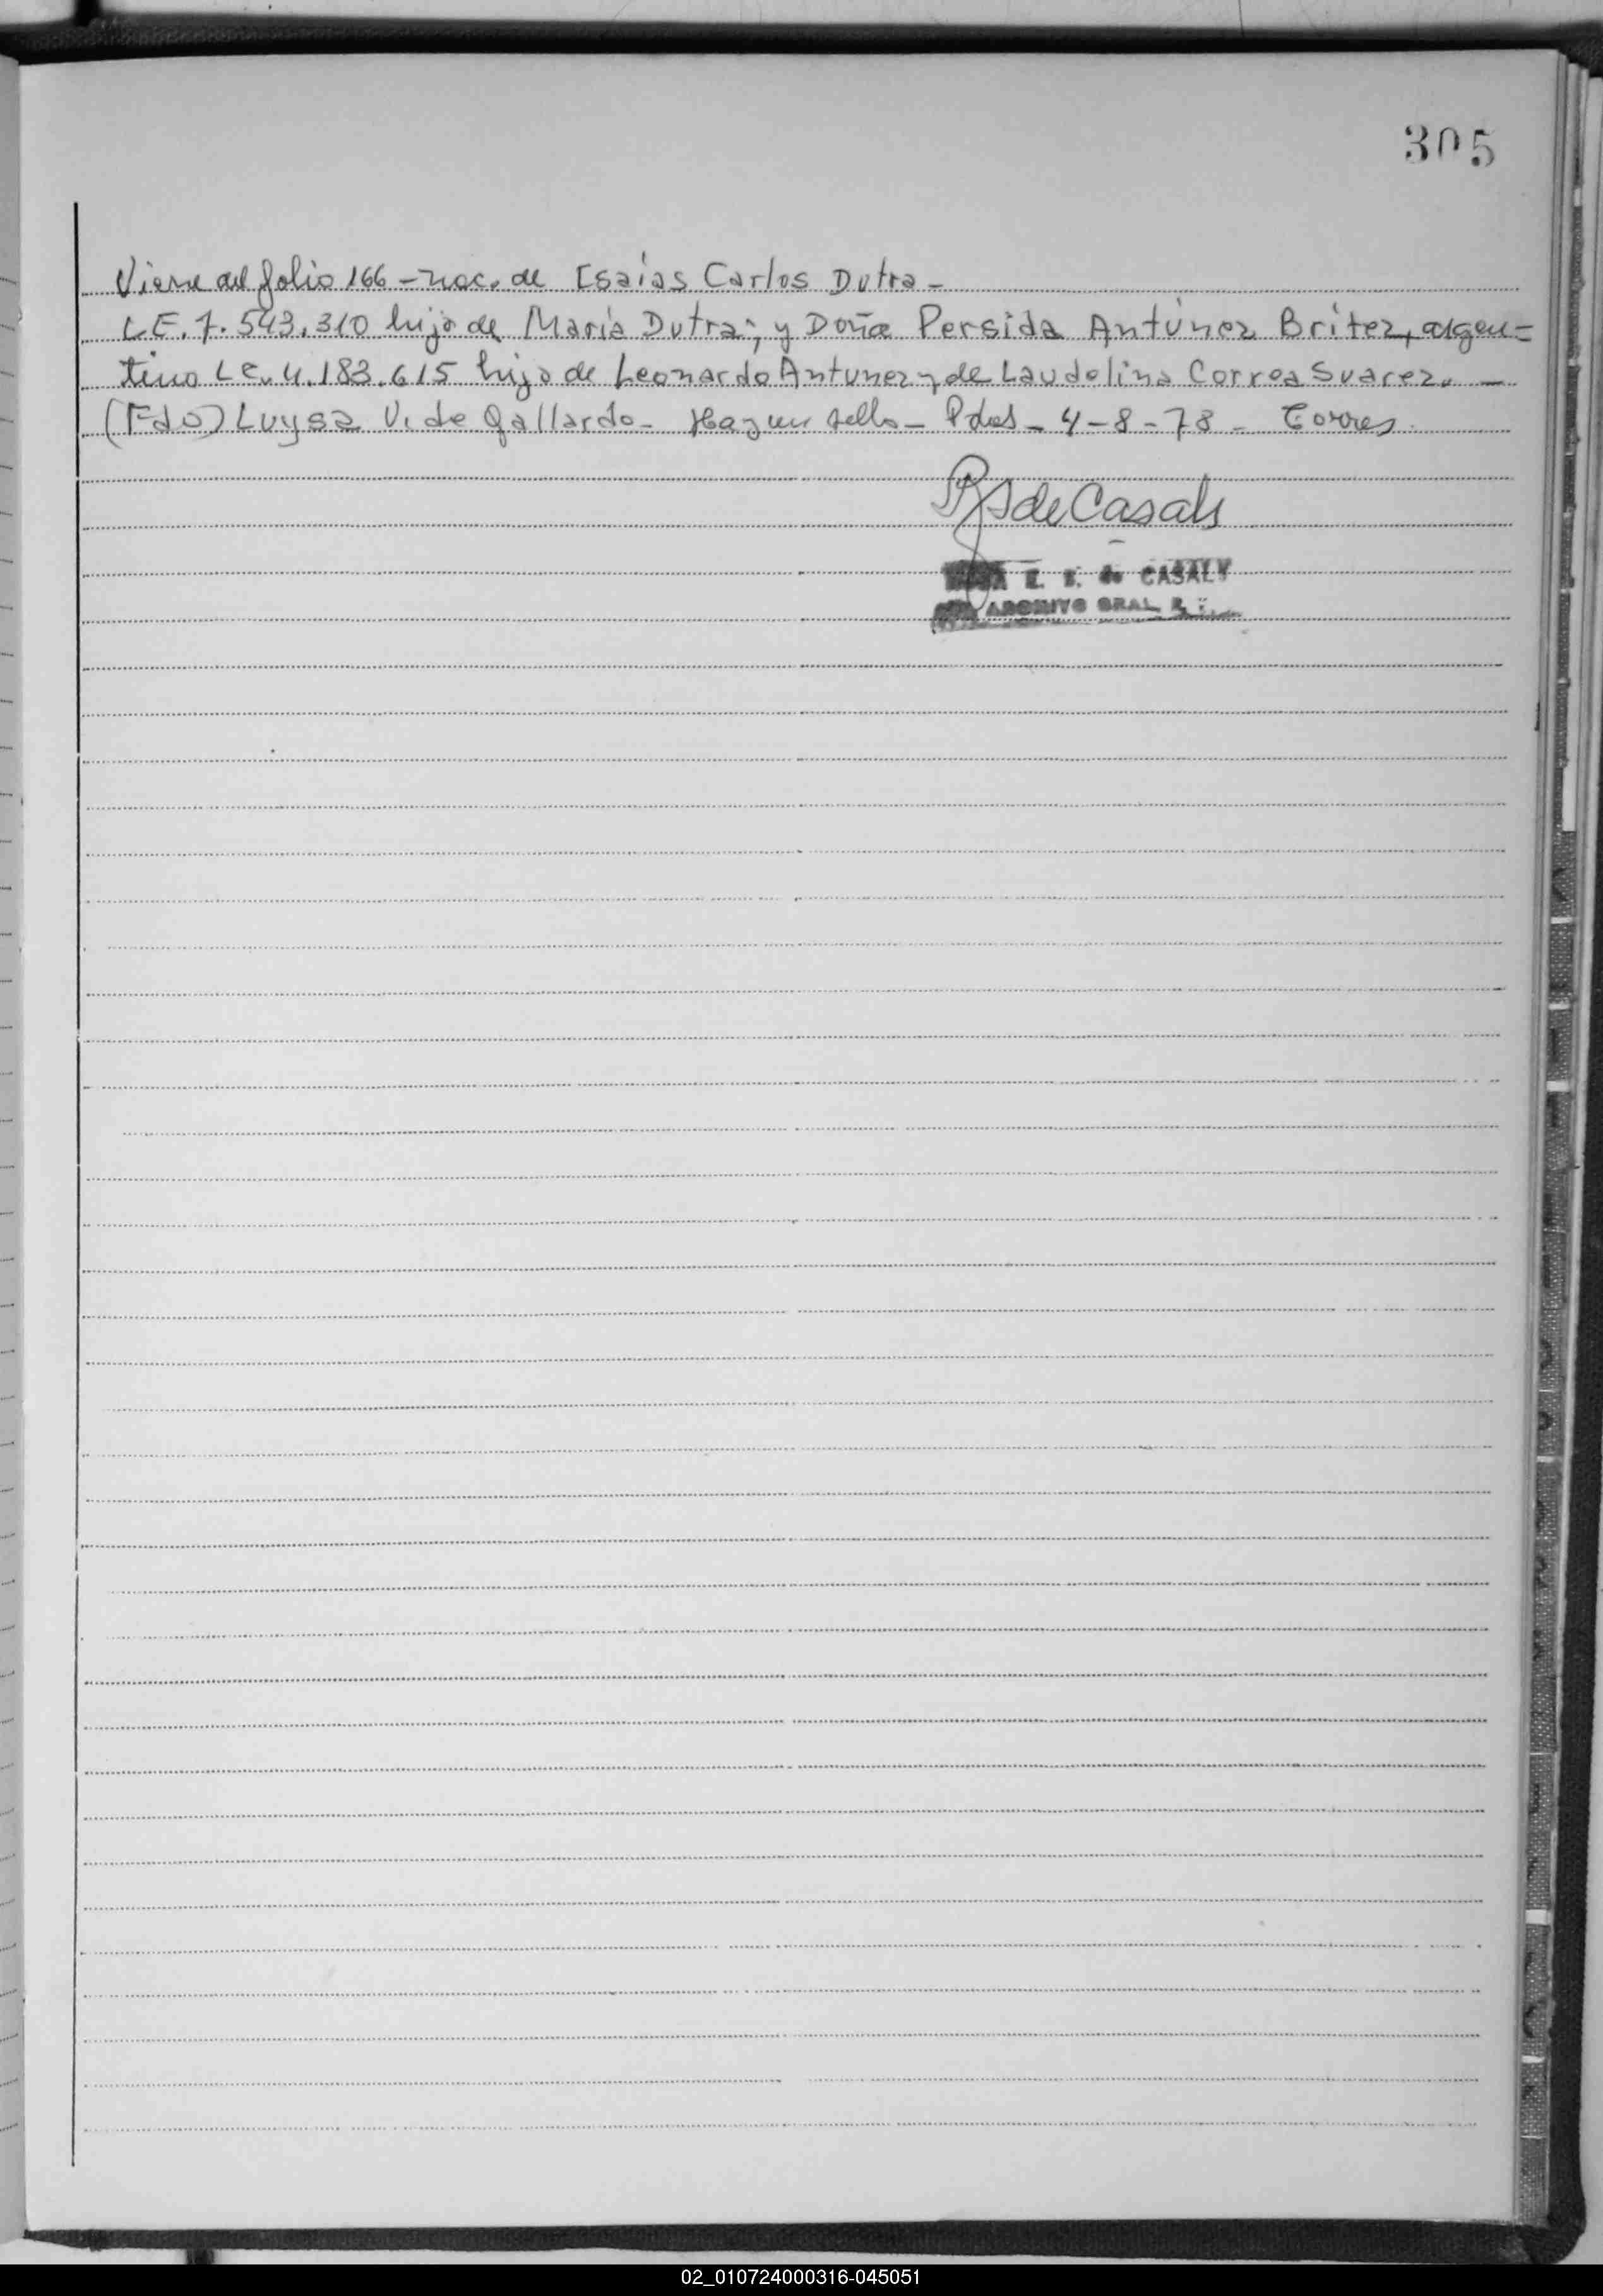 305
Viene del folio 166 - nac. de Isaías Carlos Dutra -
L.E. 7.543.310 hijo de María Dutra; y Doña Persida Antúnez Britez, argen=
tino L.C. 4.183.615 hijo de Leonardo Antunez y de Laudelina Correa Suarez. -
(Fdo) Luysa V. de Gallardo - Hay un sello - Pdas - 4-8-78 - Torres
de Casals
E. S. de CASALS
ARCHIVO GRAL. R.
02_010724000316-045051